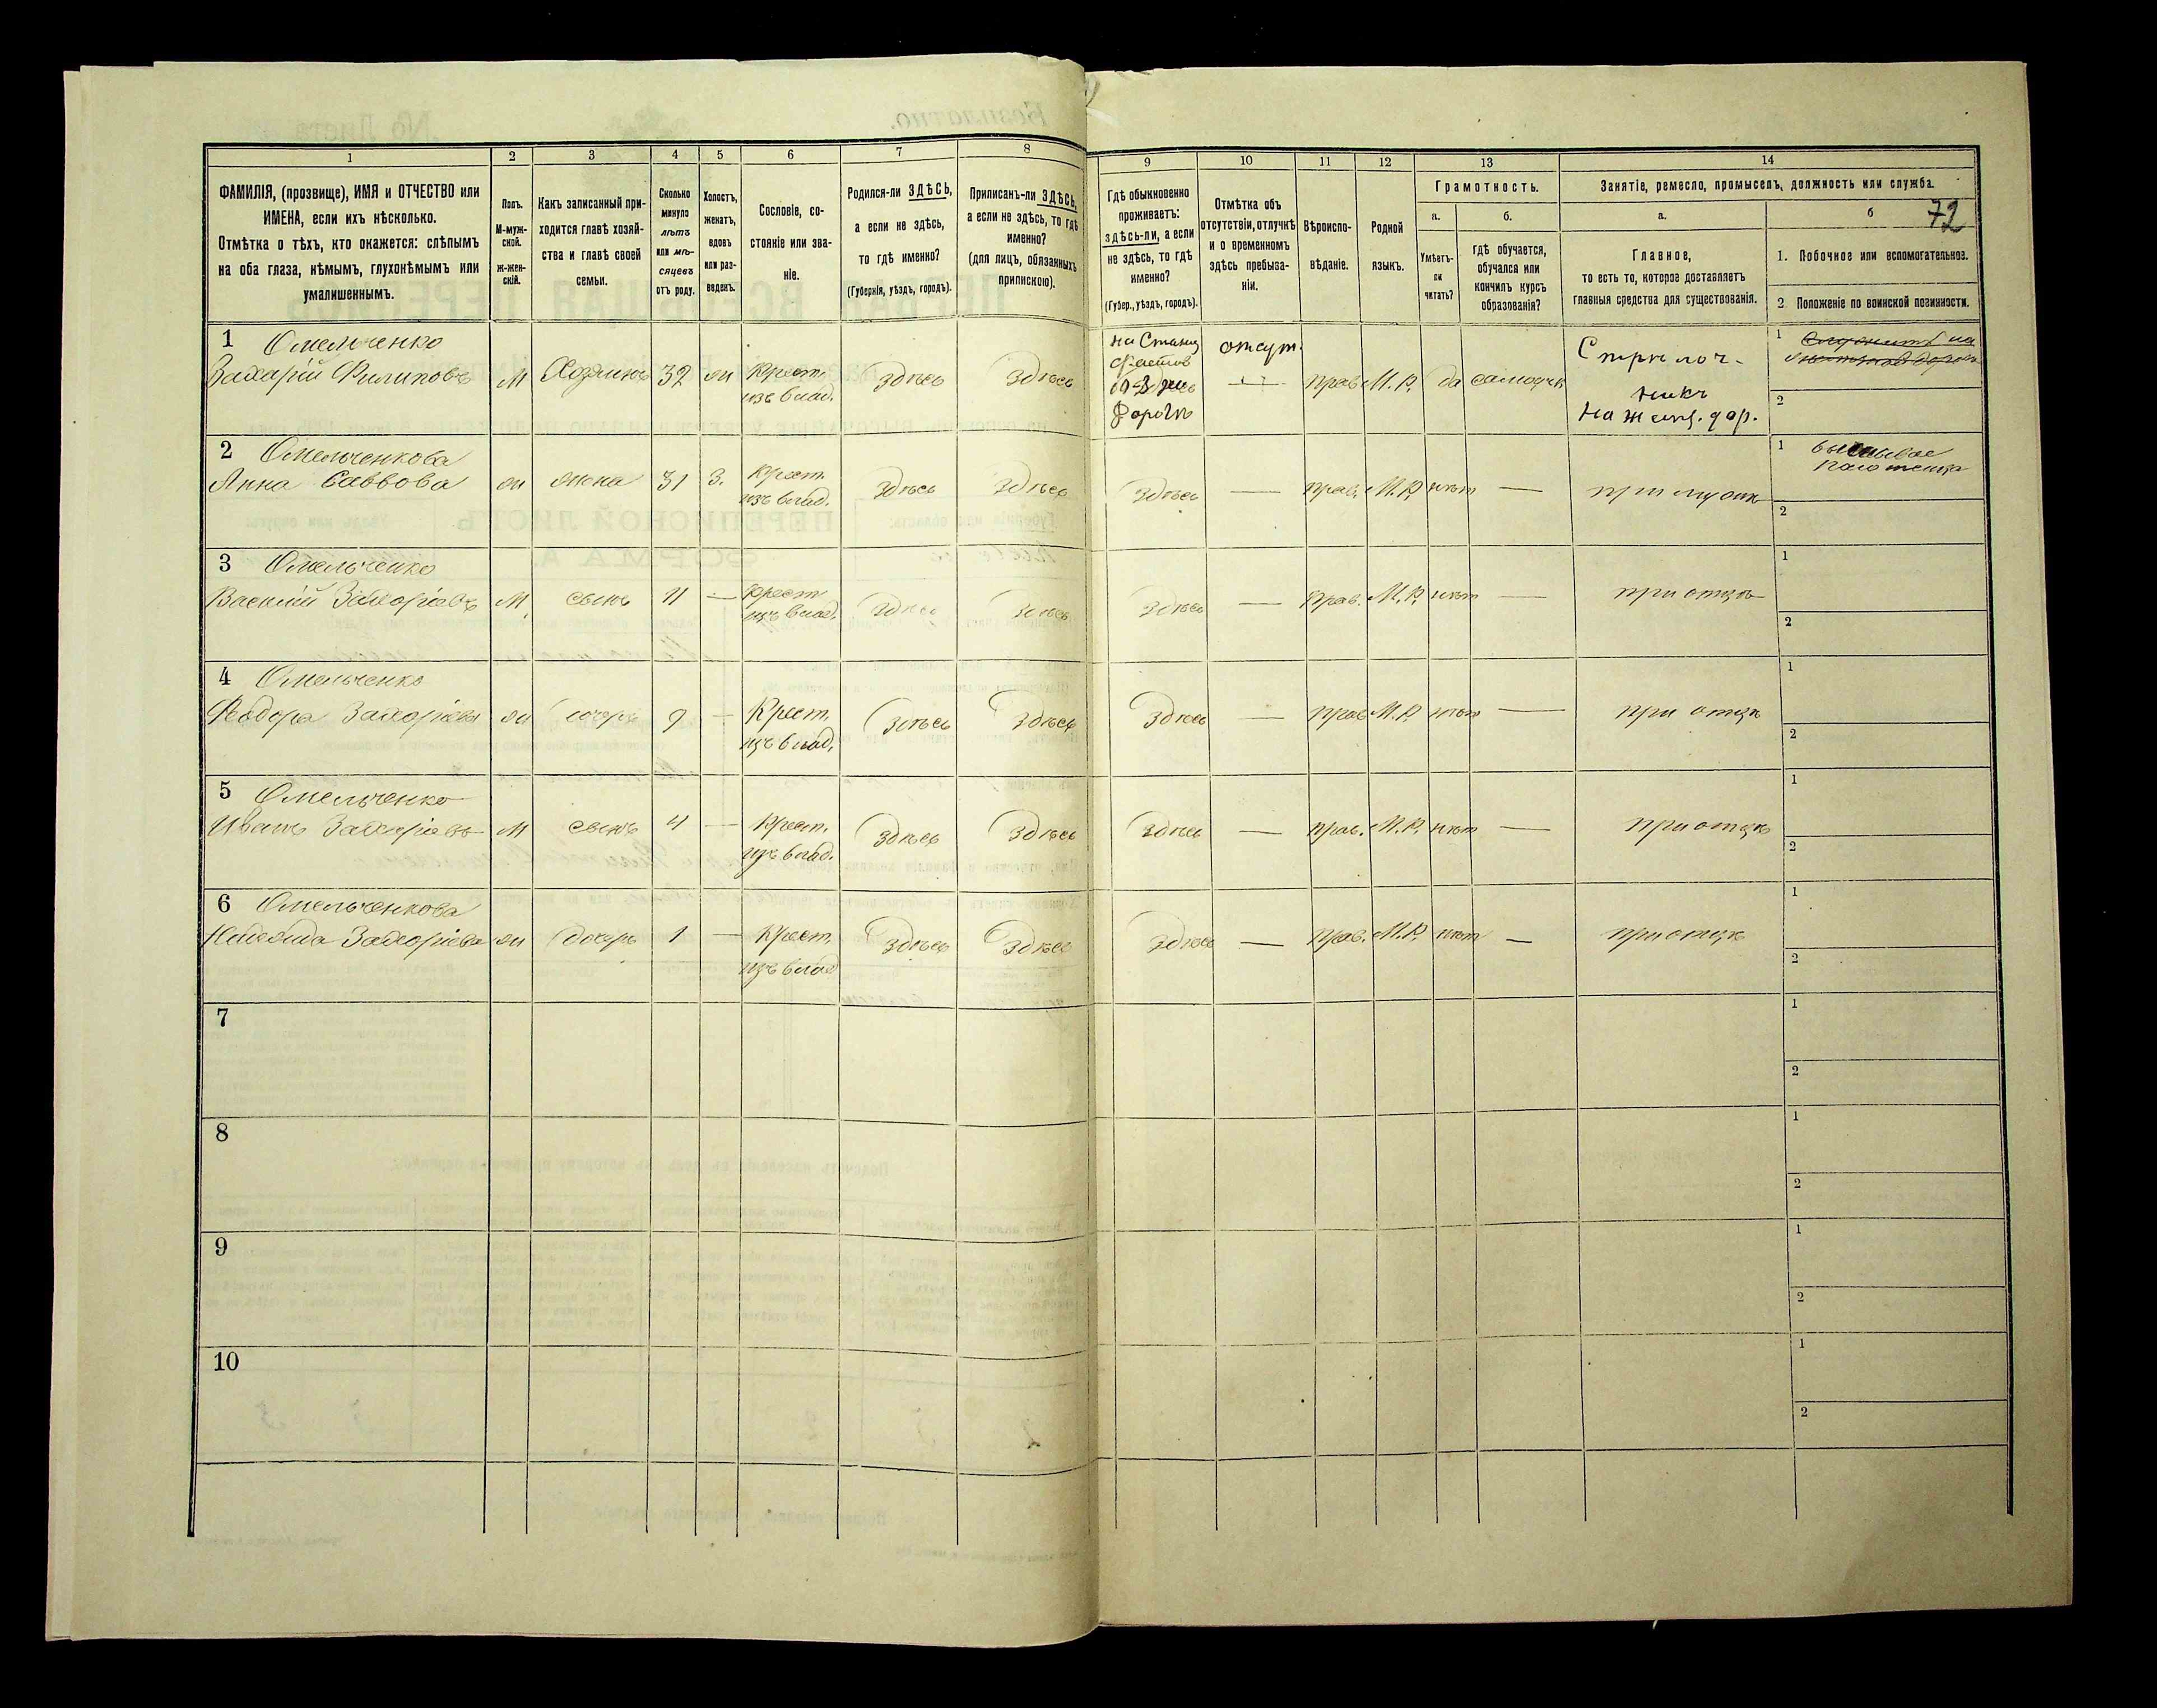 1 2 3 4 5 6 7 8 9 10 11 12 13 14
ФАМИЛІЯ, (прозвище), ИМЯ и ОТЧЕСТВО или
ИМЕНА, если ихъ нѣсколько.
Отмѣтка о тѣхъ, кто окажется: слѣпымъ
на оба глаза, нѣмымъ, глухонѣмымъ или
умалишеннымъ.
Полъ.
М-муж-
ской.
ж-жен-
скій.
Какъ записанный при-
ходится главѣ хозяй-
ства и главѣ своей
семьи.
Сколько
минуло
лѣтъ
или мѣ-
сяцевъ
отъ роду.
Холостъ,
женатъ,
вдовъ
или раз-
веденъ.
Сословіе, со-
стояніе или зва-
ніе.
Родился-ли ЗДѢСЬ,
а если не здѣсь,
то гдѣ именно?
(Губернія, уѣздъ, городъ).
Приписанъ-ли ЗДѢСЬ,
а если не здѣсь, то гдѣ
именно?
(для лицъ, обязанныхъ
припискою).
Гдѣ обыкновенно
проживаетъ:
здѣсь-ли, а если
не здѣсь, то гдѣ
именно?
(Губер., уѣздъ, городъ).
Отмѣтка объ
отсутствіи, отлучкѣ
и о временномъ
здѣсь пребыва-
ніи.
Вѣроиспо-
вѣданіе.
Родной
языкъ.
Грамотность.
а.
Умѣетъ-
ли
читать?
б.
гдѣ обучается,
обучался или
кончилъ курсъ
образованія?
Занятіе, ремесло, промыселъ, должность или служба.
а.
Главное,
то есть то, которое доставляетъ
главныя средства для существованія.
б
72
1. Побочное или вспомогательное.
2. Положеніе по воинской повинности.
1 Омельченко
Захарій Филиповъ М Хозяинъ 32 жи Крест.
изъ влад. Здѣсь Здѣсь
на Станц
Фастов
Ю-З же
Дороги
отсут.
прав. М. Р. да самоучк
Стрѣлоч-
никъ
на желѣз. дор.
1
2
2 Омельченкова
Анна Саввова жи жена 31 З. Крест.
изъ влад. Здѣсь Здѣсь Здѣсь — прав. М. Р. нѣт — при мужѣ
1
2
3 Омельченко
Василій Захаріевъ М сынъ 11 — Крест
изъ влад. Здѣсь Здѣсь Здѣсь — Прав. М. Р. нѣт — при отцѣ
1
2
4 Омельченко
Феодора Захаріева жи дочерь 9 — Крест.
изъ влад. Здѣсь Здѣсь Здѣсь — прав М. Р. нѣт — при отцѣ
1
2
5 Омельченко
Иванъ Захаріевъ М сынъ 4 — Крест.
изъ влад. Здѣсь Здѣсь Здѣсь — прав. М. Р. нѣт — при отцѣ
1
2
6 Омельченкова
Надежда Захаріева жи дочерь 1 — Крест.
изъ влад Здѣсь Здѣсь Здѣсь — прав. М. Р. нѣт — при отцѣ
1
2
7
1
2
8
1
2
9
1
2
10
1
2